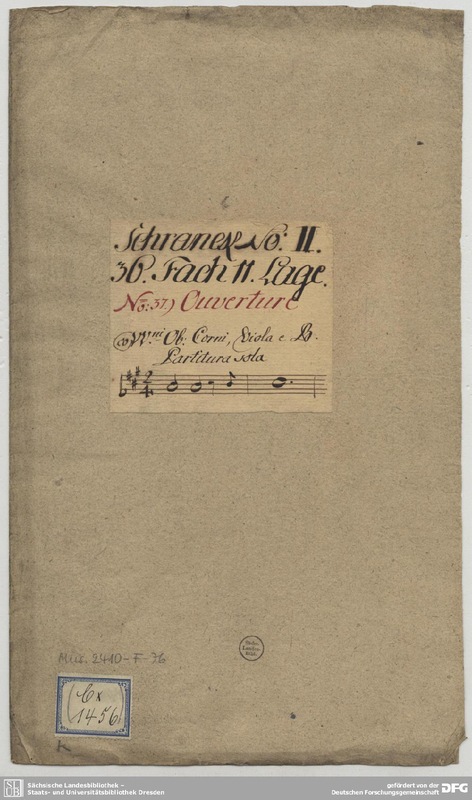 Schranck No: II.
36. Fach 11. Lage.
No: 37.) Ouverture
co VVni Ob: Corni, Viola e B.
Partitura sola
Mus. 2410-F-36
Cx
1456
K
Sächs.
Landes-
Bibl.
Sächsische Landesbibliothek –
Staats- und Universitätsbibliothek Dresden
gefördert von der
Deutschen Forschungsgemeinschaft DFG